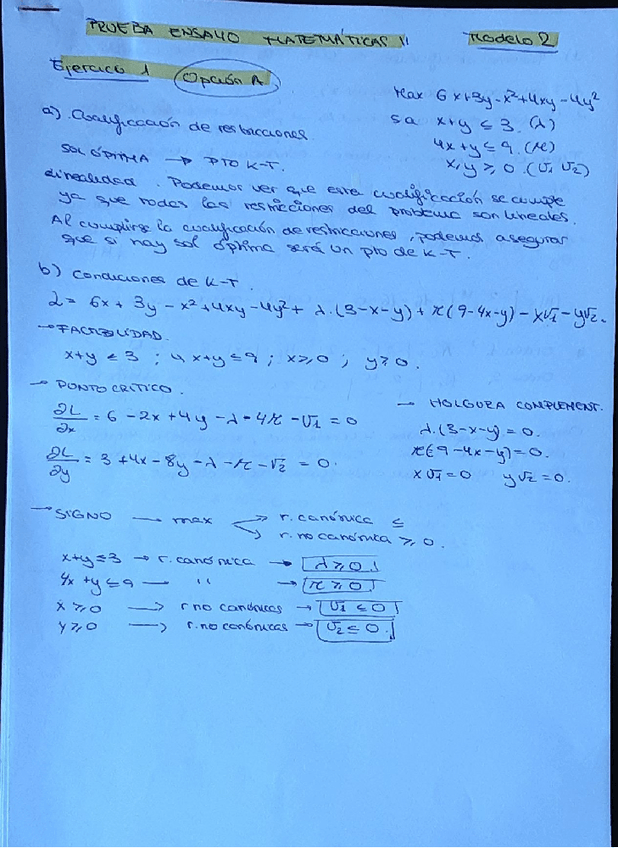 PRUEBA ENSAYO MATEMÁTICAS II Modelo 2
Ejercicio 1 Opción A
Max 6x+3y-x²+4xy-4y²
sa x+y ≤ 3 (λ)
4x+y ≤ 9 (π)
x,y ≥ 0 (v1 v2)
a) Cualificación de restricciones
SOL ÓPTIMA → PTO K-T.
Linealidad. Podemos ver que esta cualificación se cumple
ya que todas las restricciones del problema son lineales.
Al cumplirse la cualificación de restricciones, podemos asegurar
que si hay sol óptima será un pto de K-T.
b) Condiciones de K-T.
L = 6x + 3y - x² + 4xy - 4y² + λ.(3-x-y) + π(9-4x-y) - xv1 - yv2.
→ FACTIBILIDAD.
x+y ≤ 3 ; 4x+y ≤ 9 ; x ≥ 0 ; y ≥ 0.
→ PUNTO CRÍTICO.
∂L/∂x = 6 - 2x + 4y - λ - 4π - v1 = 0
∂L/∂y = 3 + 4x - 8y - λ - π - v2 = 0.
→ HOLGURA COMPLEMENT.
λ.(3-x-y) = 0.
π(9-4x-y) = 0.
xv1 = 0 yv2 = 0.
→ SIGNO → max → r. canónica ≤
→ r. no canónica ≥ 0.
x+y ≤ 3 → r. canónica → λ ≥ 0.
4x+y ≤ 9 — " → π ≥ 0.
x ≥ 0 → r no canónicas → v1 ≤ 0
y ≥ 0 → r. no canónicas → v2 ≤ 0.